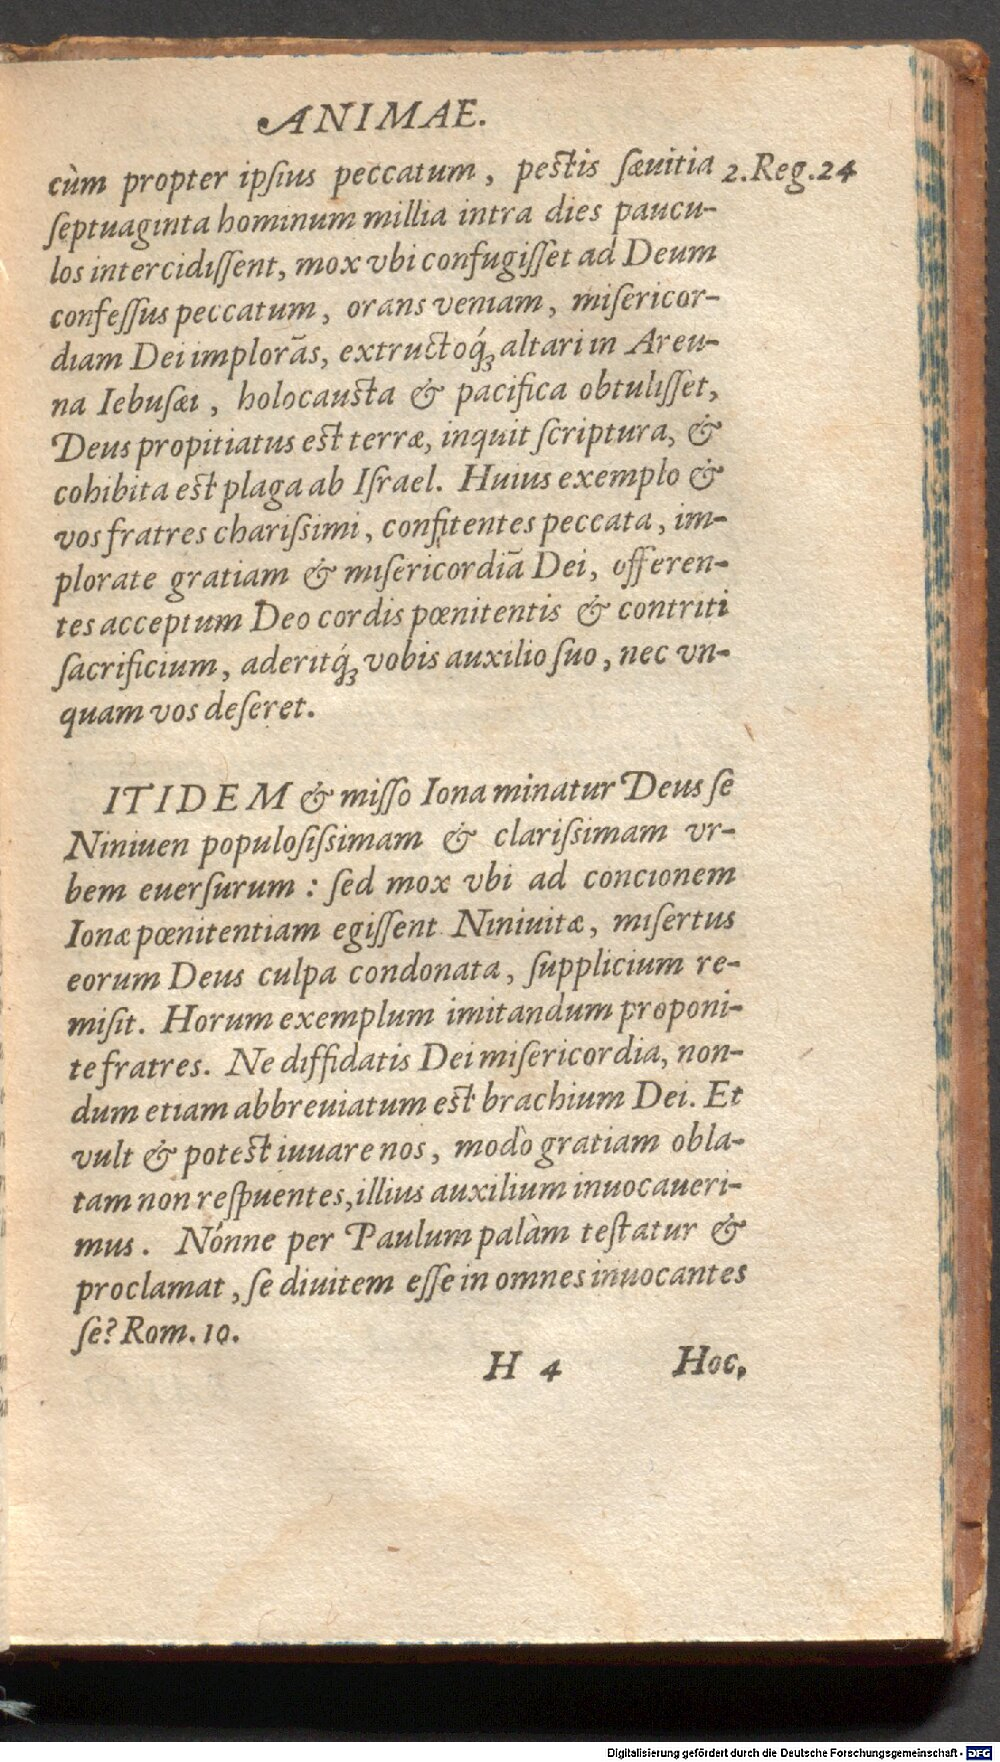 ANIMAE.
cùm propter ipſius peccatum, peſtis ſæuitia 2. Reg. 24
ſeptuaginta hominum millia intra dies paucu-
los intercidiſſent, mox vbi confugiſſet ad Deum
confeſſus peccatum, orans veniam, miſericor-
diam Dei implorãs, extructoq́ꝫ altari in Areu-
na Iebuſæi, holocauſta & pacifica obtuliſſet,
Deus propitiatus eſt terræ, inquit ſcriptura, &
cohibita eſt plaga ab Iſrael. Huius exemplo &
vos fratres chariſsimi, confitentes peccata, im-
plorate gratiam & miſericordiã Dei, offeren-
tes acceptum Deo cordis pœnitentis & contriti
ſacrificium, aderitq́ꝫ vobis auxilio ſuo, nec vn-
quam vos deſeret.
ITIDEM & miſſo Iona minatur Deus ſe
Niniuen populoſiſsimam & clariſsimam vr-
bem euerſurum: ſed mox vbi ad concionem
Ionæ pœnitentiam egiſſent Niniuitæ, miſertus
eorum Deus culpa condonata, ſupplicium re-
miſit. Horum exemplum imitandum proponi-
te fratres. Ne diffidatis Dei miſericordia, non-
dum etiam abbreuiatum eſt brachium Dei. Et
vult & poteſt iuuare nos, modò gratiam obla-
tam non reſpuentes, illius auxilium inuocaueri-
mus. Nónne per Paulum palàm teſtatur &
proclamat, ſe diuitem eſſe in omnes inuocantes
ſe? Rom. 10.
H 4 Hoc,
Digitalisierung gefördert durch die Deutsche Forschungsgemeinschaft - DFG